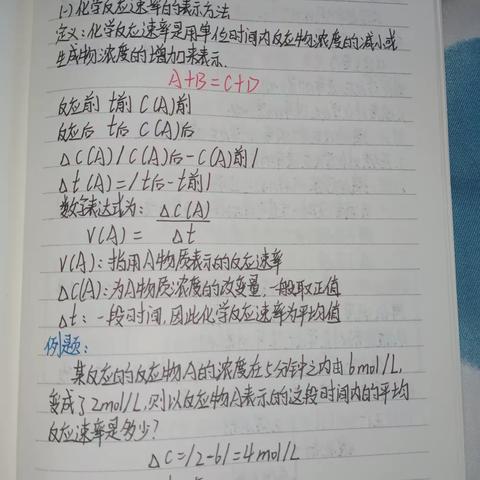 (一)化学反应速率的表示方法
定义:化学反应速率是用单位时间内反应物浓度的减小或
生成物浓度的增加来表示.
A+B=C+D
反应前 t前 C(A)前
反应后 t后 C(A)后
△C(A)/C(A)后-C(A)前/
△t(A)=/t后-t前/
数字表达式为: △C(A)
V(A)= △t
V(A):指用A物质表示的反应速率
△C(A):为A物质浓度的改变量,一般取正值
△t:一段时间,因此化学反应速率为平均值
例题:
某反应的反应物A的浓度在5分钟之内由6mol/L,
变成了2mol/L,则以反应物A表示的这段时间内的平均
反应速率是多少?
△C=/2-6/=4mol/L